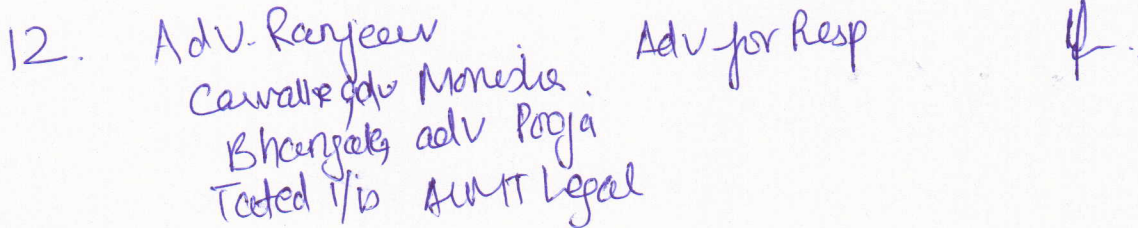 12. Adv. Ranjeev Adv for Resp
Carvalho adv Monisha.
Bhangale, adv Pooja
Tated i/b AUMT Legal